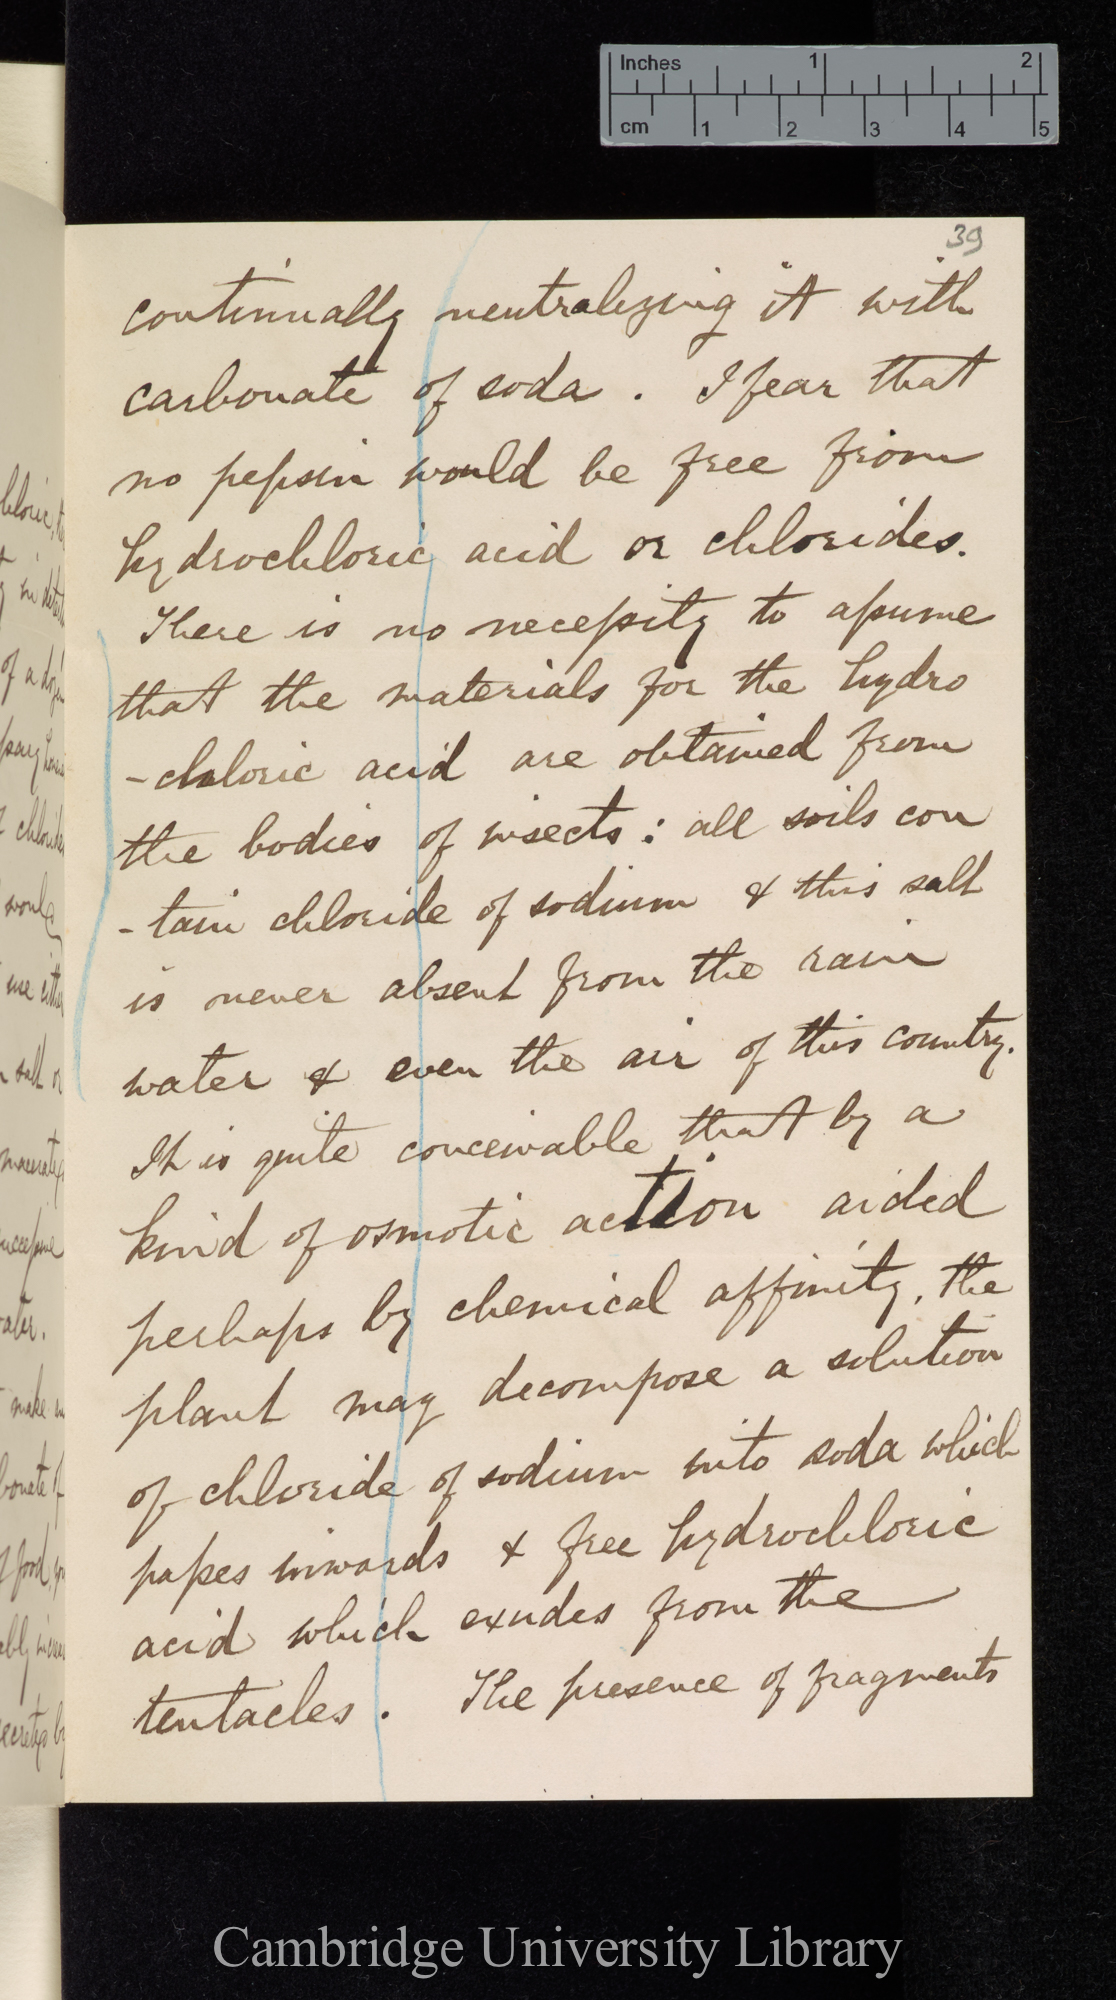 Inches 1 2
cm 1 2 3 4 5
39
continually neutralizing it with
carbonate of soda. I fear that
no pepsin would be free from
hydrochloric acid or chlorides.
There is no necessity to assume
that the materials for the hydro
-chloric acid are obtained from
the bodies of insects: all soils con
-tain chloride of sodium & this salt
is never absent from the rain
water & even the air of this country.
It is quite conceivable that by a
kind of osmotic action aided
perhaps by chemical affinity, the
plant may decompose a solution
of chloride of sodium into soda which
passes inwards & free hydrochloric
acid which exudes from the
tentacles. The presence of fragments
Cambridge University Library